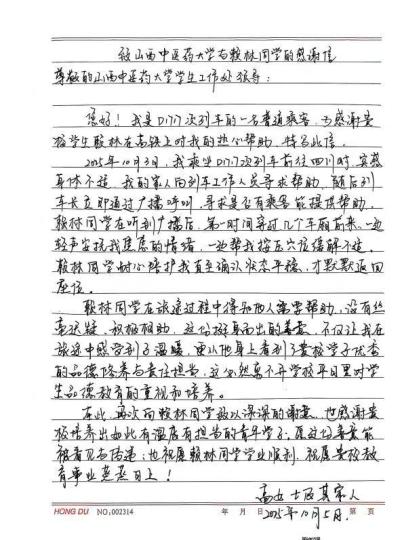 致山西中医药大学右赖林同学的感谢信
尊敬的山西中医药大学学生工作处领导：
您好！我是D1717次列车的一名普通乘客，为感谢贵
校学生赖林在高铁上对我的热心帮助，特写此信。
2025年10月3日，我乘坐D1717次列车前往四川时，突感
身体不适，我的家人向列车工作人员寻求帮助，随后列
车长立即通过广播呼叫，寻求是否有乘客能提供帮助。
赖林同学在听到广播后，第一时间穿过几个车厢赶来，一边
轻声安抚我焦虑的情绪，一边帮我按压穴位缓解不适。
赖林同学耐心维护我直至确认状态平稳，才默默返回
座位。
赖林同学在旅途过程中得知他人需要帮助，没有丝
毫迟疑，积极相助，这份挺身而出的善意，不仅让我在
旅途中感受到了温暖，更从他身上看到了贵校学子优秀
的品德修养与责任担当，这必然离不开学校平日里对学
生品德教育的重视和培养。
在此，再次向赖林同学致以深深的谢意，也感谢贵
校培养出如此有温度有担当的青年学子，愿这份善意能
被看见与传递；也祝愿赖林同学学业顺利，祝愿贵校教
育事业蒸蒸日上！
高女士及其家人
2025年10月5日
HONG DU NO:002314 年 月 日 第 页